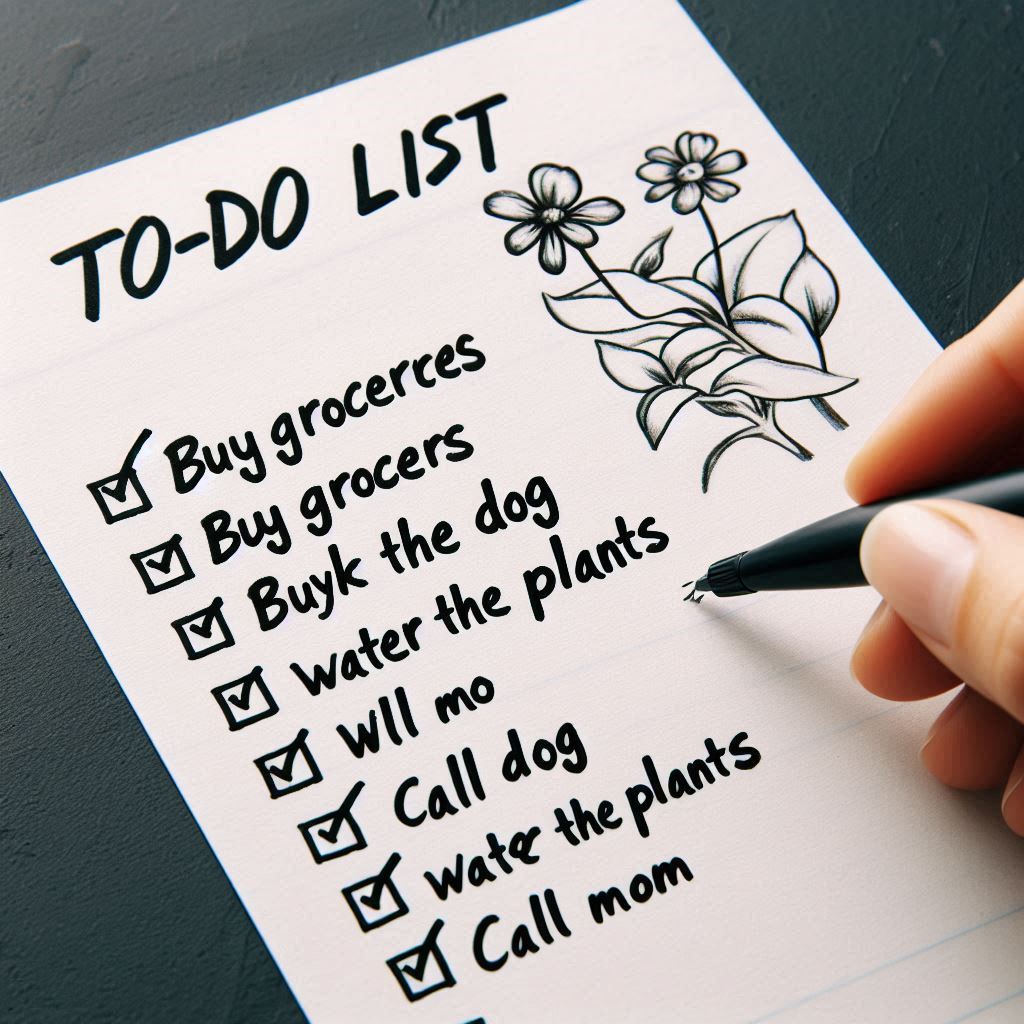 TO-DO LIST
Buy grocerres
Buy grocers
Buyk the dog
water the plants
Wll mo
Call dog
water the plants
Call mom